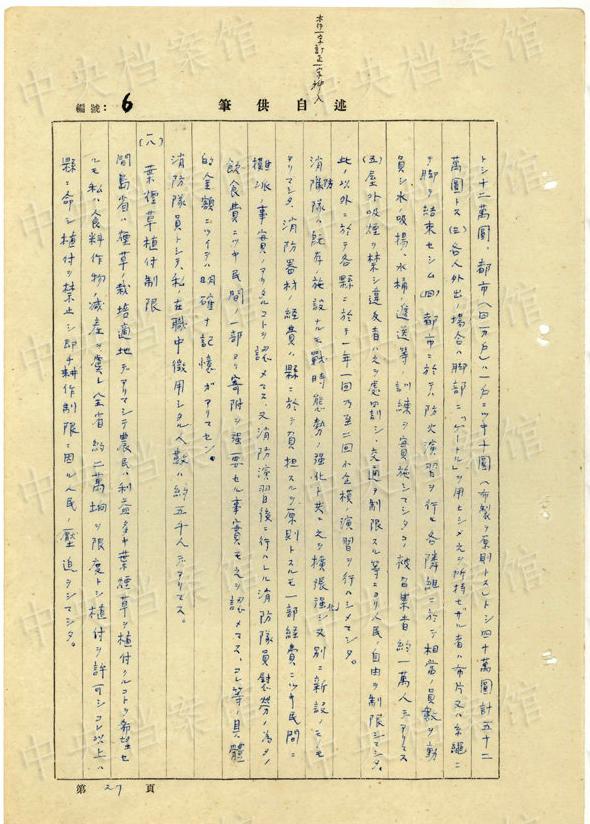 本行一字訂正一字挿入
編號: 6
筆供自述
トシ十二萬圓、都市ハ(四万戸)ハ一戸ニツキ十圓(布製ヲ原則トス)トシ四十萬圓計五十二
萬圓トス (三) 各人外出ノ場合ハ脚部ニ「ゲートル」ヲ用ヒシメ之ヲ所持セザル者ハ布片又ハ糸縄ニ
テ脚ヲ結束セシム (四) 都市ニ於テハ防火演習ヲ行ヒ各隣組ニ於テ相當ノ員數ヲ動
員シ水吸揚、水桶ノ逓送等ノ訓練ヲ實施シマシタ。被召集者約一萬人デアリマス
(五) 屋外吸煙ヲ禁シ違反者ハ之ヲ處罰シ、交通ヲ制限スル等ニヨリ人民ノ自由ヲ制限シマシタ。
此ノ以外ニ於テ各縣ニ於テ一年一回乃至二回小全模ノ演習ヲ行ハシメマシタ。
消防隊ハ既存ノ施設ナルモ戰時態勢ノ強化ト共ニ之ヲ擴張強化シ又別ニ新設ノモノモ
アリマシタ、消防器材ノ經費ハ縣ニ於テ負担スルヲ原則トスルモ一部經費ニツキ民間ニ
攤派ノ事實ノアリタルコトヲ認メマス、又消防演習後ニ行ハレル消防隊員慰勞ノ為メノ
飲食費ニツキ民間ノ一部ヨリ寄附ヲ强要セル事實モ之ヲ認メマス、コレ等ノ具體
的金額ニツイテハ明確ナ記憶ガアリマセン。
消防隊員トシテ、私ノ在職中徴用シタル人數ハ約五千人デアリマス。
(八) 葉煙草植付制限
間島省ハ煙草ノ栽培適地デアリマシテ農民ハ利益多キ葉煙草ヲ植付クルコトヲ希望セ
ルモ私ハ食料作物ノ減産ヲ虞レ全省約二萬垧ヲ限度トシ植付ヲ許可シコレ以上ハ
縣ニ命シ植付ヲ禁止シ即チ耕作制限ニ因ル人民ノ壓迫ヲシマシタ。
第 27 頁
中央档案馆